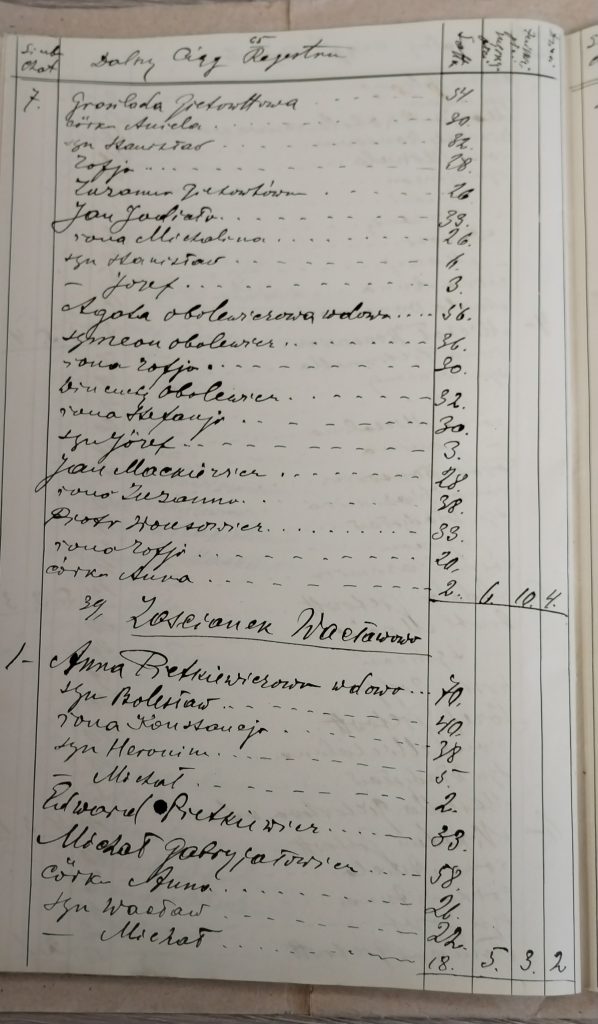 65
Dalszy Ciąg Regestru
7. Gosiloda Zietowttowa 54.
córka Aniela 30.
syn Stanisław 32.
Zofja 28.
Zuzanna Zietowtówna 26
Jan 33.
żona Michalina 26.
syn Stanisław 4.
— Józef 3.
Agata Obolewiczowa wdowa 56.
Symeon Obolewicz 36.
żona Zofja 30.
Wincenty Obolewicz 32.
żona Stefanja 30.
syn Józef 3.
Jan Mackiewicz 28.
żona Zuzanna 38.
Piotr Wonsowicz 33.
żona Zofja 20.
córka Anna 2. 6. 10. 4.
39, Zaścianek Wacławowo
1- Anna Pietkiewiczowa wdowa 70.
syn Bolesław 40.
żona Konstancja 38
syn Heronim 5.
— Michał 2.
Edward Pietkiewicz 33.
Michał Gabryjałowicz 58.
córka Anna 26.
syn Wacław 22.
— Michał 18. 5. 3. 2